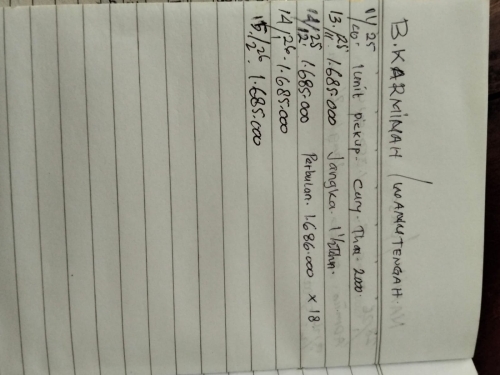 B. KARMINAH / WANUTENGAH.
11/25
/co: 1 unit pickup. Cury. Thn. 2000
13/11 25 1.685.000 Jangka. 1½ Thn.
14/12 25 1.685.000 Perbulan. 1.686.000 x 18
14/1 26. 1.685.000
15/2 26 1.685.000